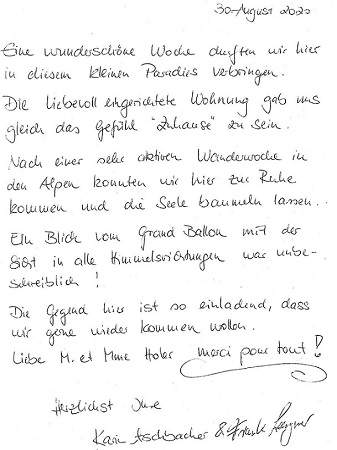 30. August 2020
Eine wunderschöne Woche durften wir hier
in diesem kleinen Paradies verbringen.
Die liebevoll eingerichtete Wohnung gab uns
gleich das Gefühl "zuhause" zu sein.
Nach einer sehr aktiven Wanderwoche in
den Alpen konnten wir hier zur Ruhe
kommen und die Seele baumeln lassen..
Ein Blick vom Grand Ballon mit der
Sicht in alle Himmelsrichtungen war unbe-
schreiblich!
Die Gegend hier ist so einladend, dass
wir gerne wieder kommen wollen.
Liebe M. et Mme Holer merci pour tout!
Herzlichst Ihre
Karin Aschbacher & Frank